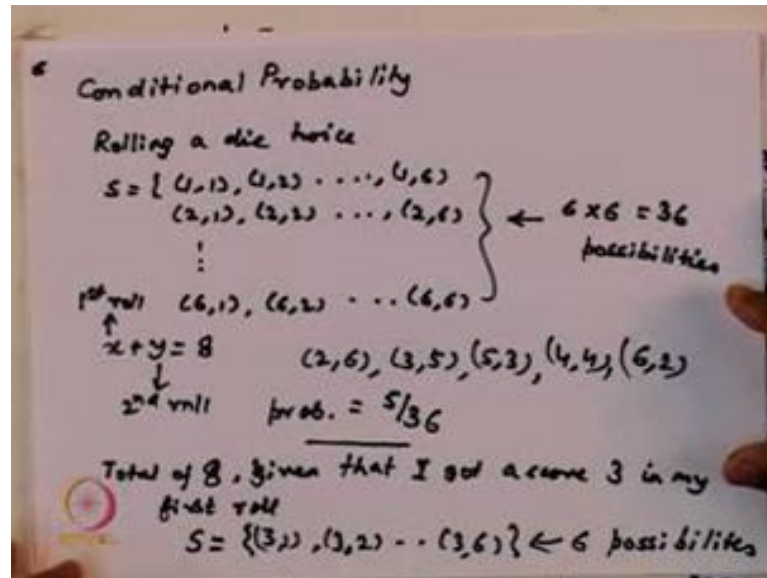 6
Conditional Probability
Rolling a die twice
S = { (1,1), (1,2) ...., (1,6)
(2,1), (2,2) ..., (2,6)
⋮
(6,1), (6,2) ... (6,6) }
← 6 x 6 = 36
possibilities
1st roll
↑
x + y = 8
↓
2nd roll
(2,6), (3,5), (5,3), (4,4), (6,2)
prob. = 5/36
Total of 8, given that I got a score 3 in my
first roll
S = {(3,1), (3,2) -- (3,6)} ← 6 possibilites